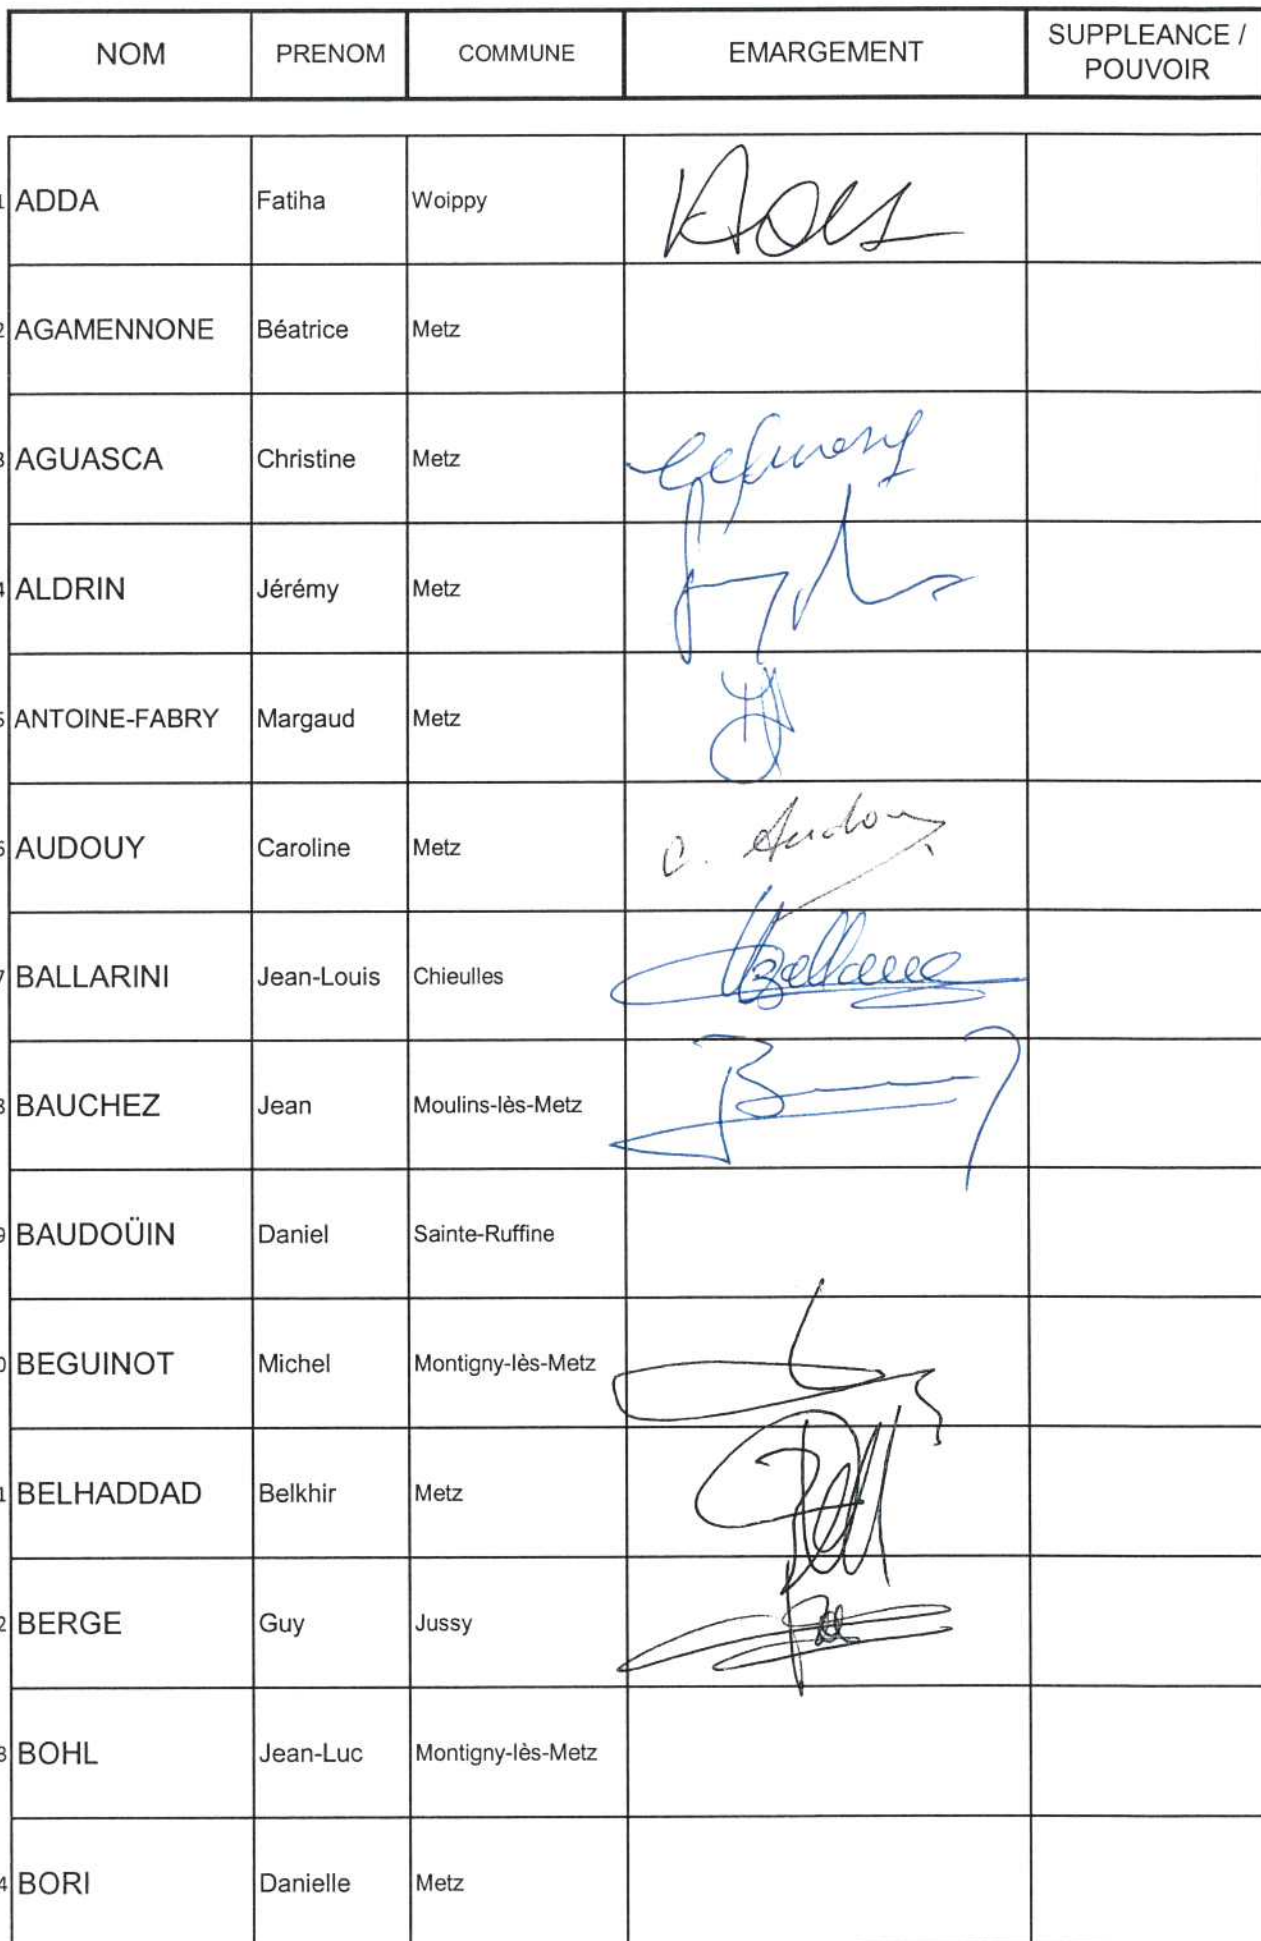 NOM PRENOM COMMUNE EMARGEMENT SUPPLEANCE /
POUVOIR
1 ADDA Fatiha Woippy
2 AGAMENNONE Béatrice Metz
3 AGUASCA Christine Metz
4 ALDRIN Jérémy Metz
5 ANTOINE-FABRY Margaud Metz
6 AUDOUY Caroline Metz C. Audouy
7 BALLARINI Jean-Louis Chieulles
8 BAUCHEZ Jean Moulins-lès-Metz
9 BAUDOÜIN Daniel Sainte-Ruffine
0 BEGUINOT Michel Montigny-lès-Metz
1 BELHADDAD Belkhir Metz
2 BERGE Guy Jussy
3 BOHL Jean-Luc Montigny-lès-Metz
4 BORI Danielle Metz